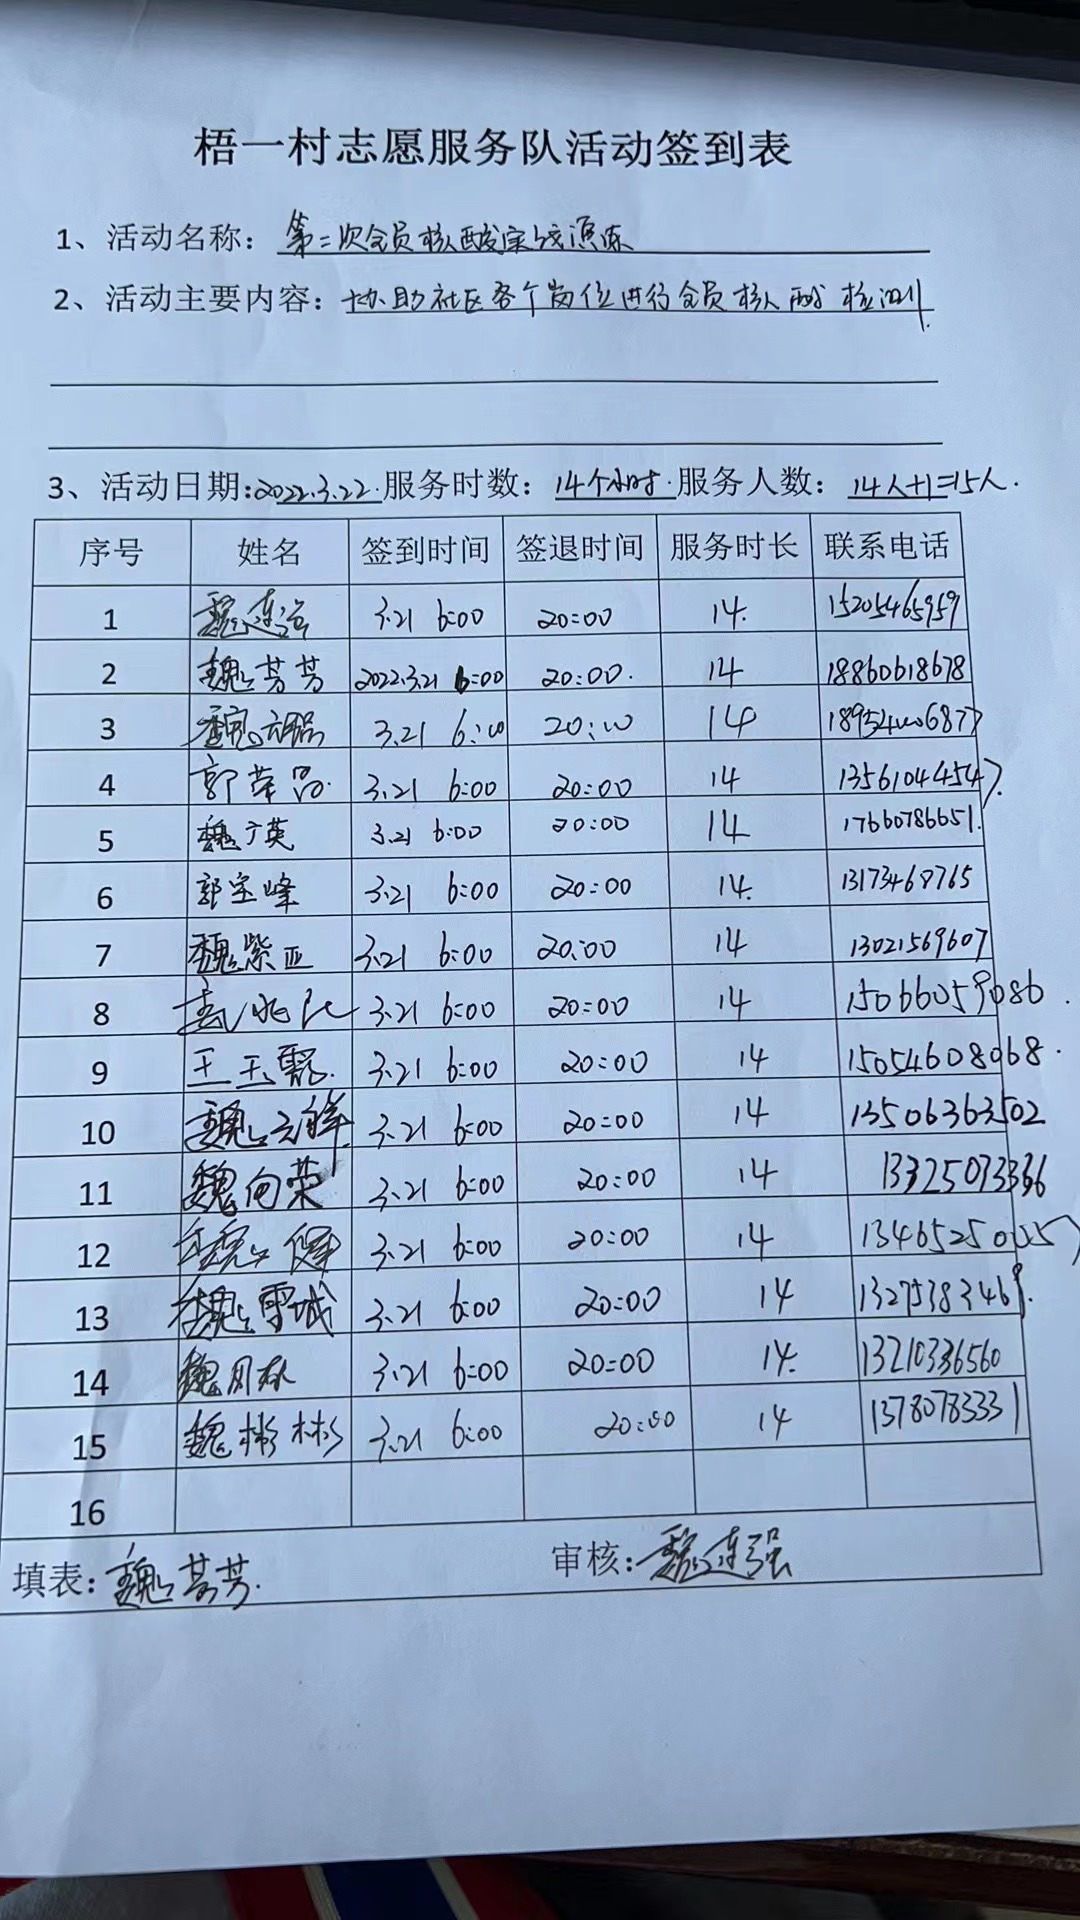 梧一村志愿服务队活动签到表
1、活动名称：第二次全员核酸实战演练
2、活动主要内容：协助社区各个岗位进行全员核酸检测.
3、活动日期:2022.3.22.服务时数：14个小时.服务人数：14人+1=15人.
序号 姓名 签到时间 签退时间 服务时长 联系电话
1 魏连 3.21 6:00 20:00 14. 15205465959
2 魏芳芳 2022.3.21 6:00 20:00. 14 18860618678
3 魏 3.21 6:00 20:00 14 18954006877
4 郭荣 3.21 6:00 20:00 14 13561044547.
5 魏广英 3.21 6:00 20:00 14 17660786651.
6 郭宝峰 3.21 6:00 20:00 14. 13173468765
7 魏紫亚 3.21 6:00 20:00 14 13021569607
8 3.21 6:00 20:00 14 15066059086.
9 王玉霞. 3.21 6:00 20:00 14 15054608068.
10 魏云祥 3.21 6:00 20:00 14 13506363502
11 魏向荣 3.21 6:00 20:00 14 13325073336
12 魏 3.21 6:00 20:00 14
13 魏雪城 3.21 6:00 20:00 14 13275383469.
14 魏月 3.21 6:00 20:00 14. 13210336560
15 魏彬彬 3.21 6:00 20:00 14 13780783331
16
填表：魏芳芳. 审核：魏连强